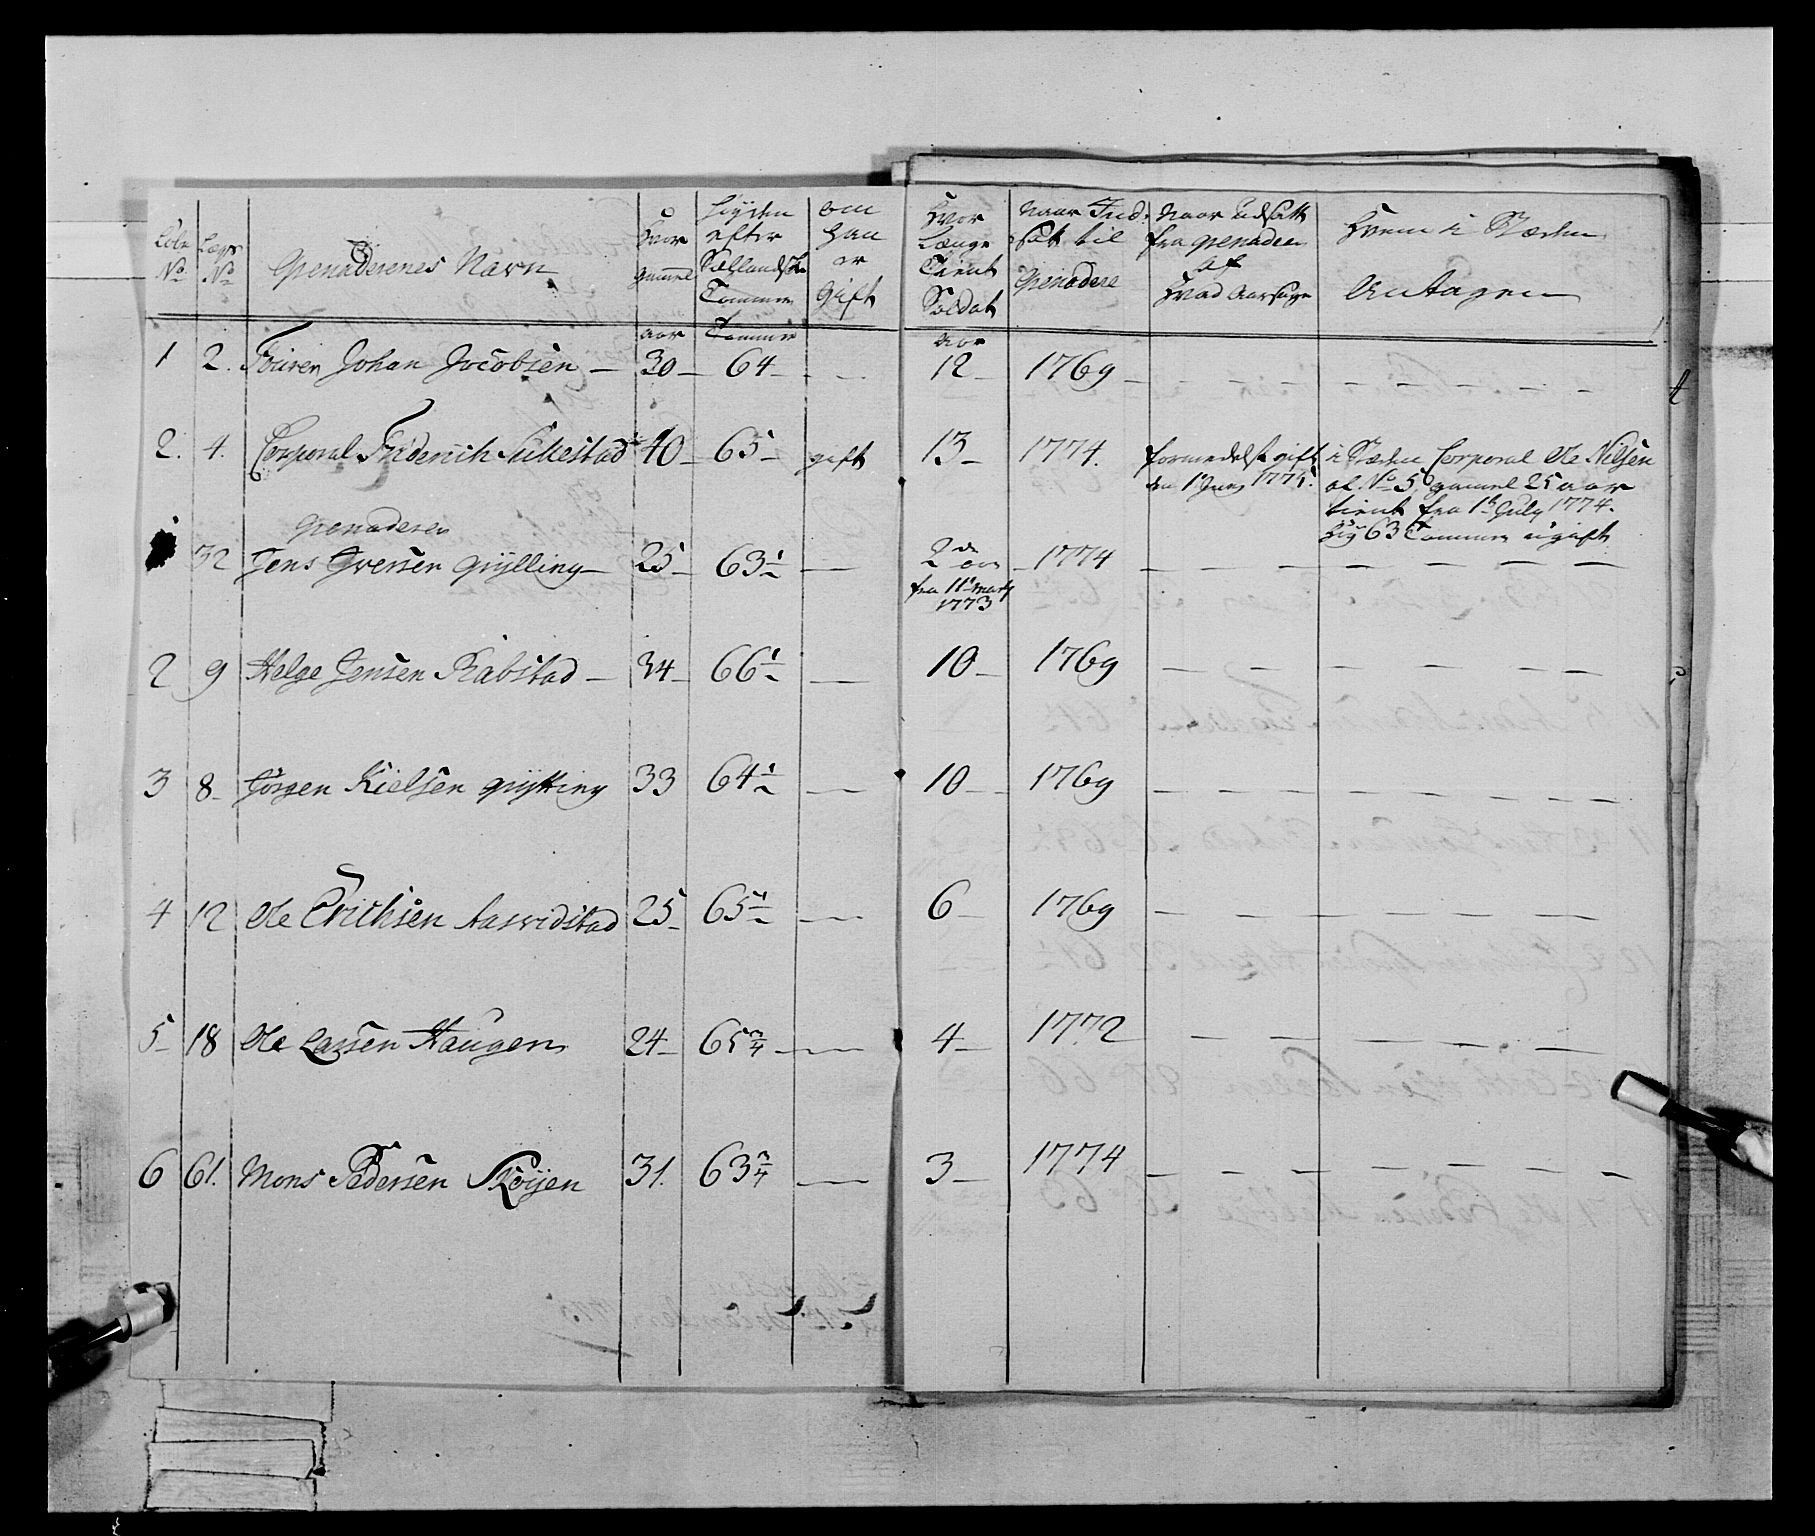 Lobe No. | Lægs No. | Grenaderenes Navn | Hvor gammel | Høyden efter Sællandske Tommer | om han er gift | Hvor Længe Tient Soldat | Naar Ind Sat til Grenadere | Naar udsatt fra grenadeer af Hvad Aarsage | Hvem i Stæden Antagen
aar | Tommer | aar
1 | 2. | Fourer Johan Jocobsen — | 30 — | 64 — | — | 12 — | 1769 —
2. | 4. | Corporal Friderich | 40 — | 65 — | gift | 13 — | 1774. | formedelst gift den 1 Juny 1775. | i Stæden Corporal Ole Nilsen af No 5 gammel 25 aar tient fra 1te July 1774. Høy 63 Tommer ugift
Grenaderer
32 | Jens Iversen Grylling — | 25 — | 63 1/2 | — | 2 de aar fra 11te Marty 1773 | 1774
2 | 9 | Helge Jensen Rabstad — | 34 — | 66 1/2 | — | 10 — | 1769
3 | 8 — | Jörgen Nielsen Grytting | 33 | 64 1/2 | — | 10 — | 1769
4 | 12 | Ole Erichsen Aasvidstad | 25 — | 65 1/2 | — | 6 — | 1769
5 — | 18 | Ole Larsen Haugen | 24 — | 65 3/4 | — | 4 — | 1772
6 | 61. | Mons Pedersen Sköyen | 31. | 63 3/4 | — | 3 — | 1774